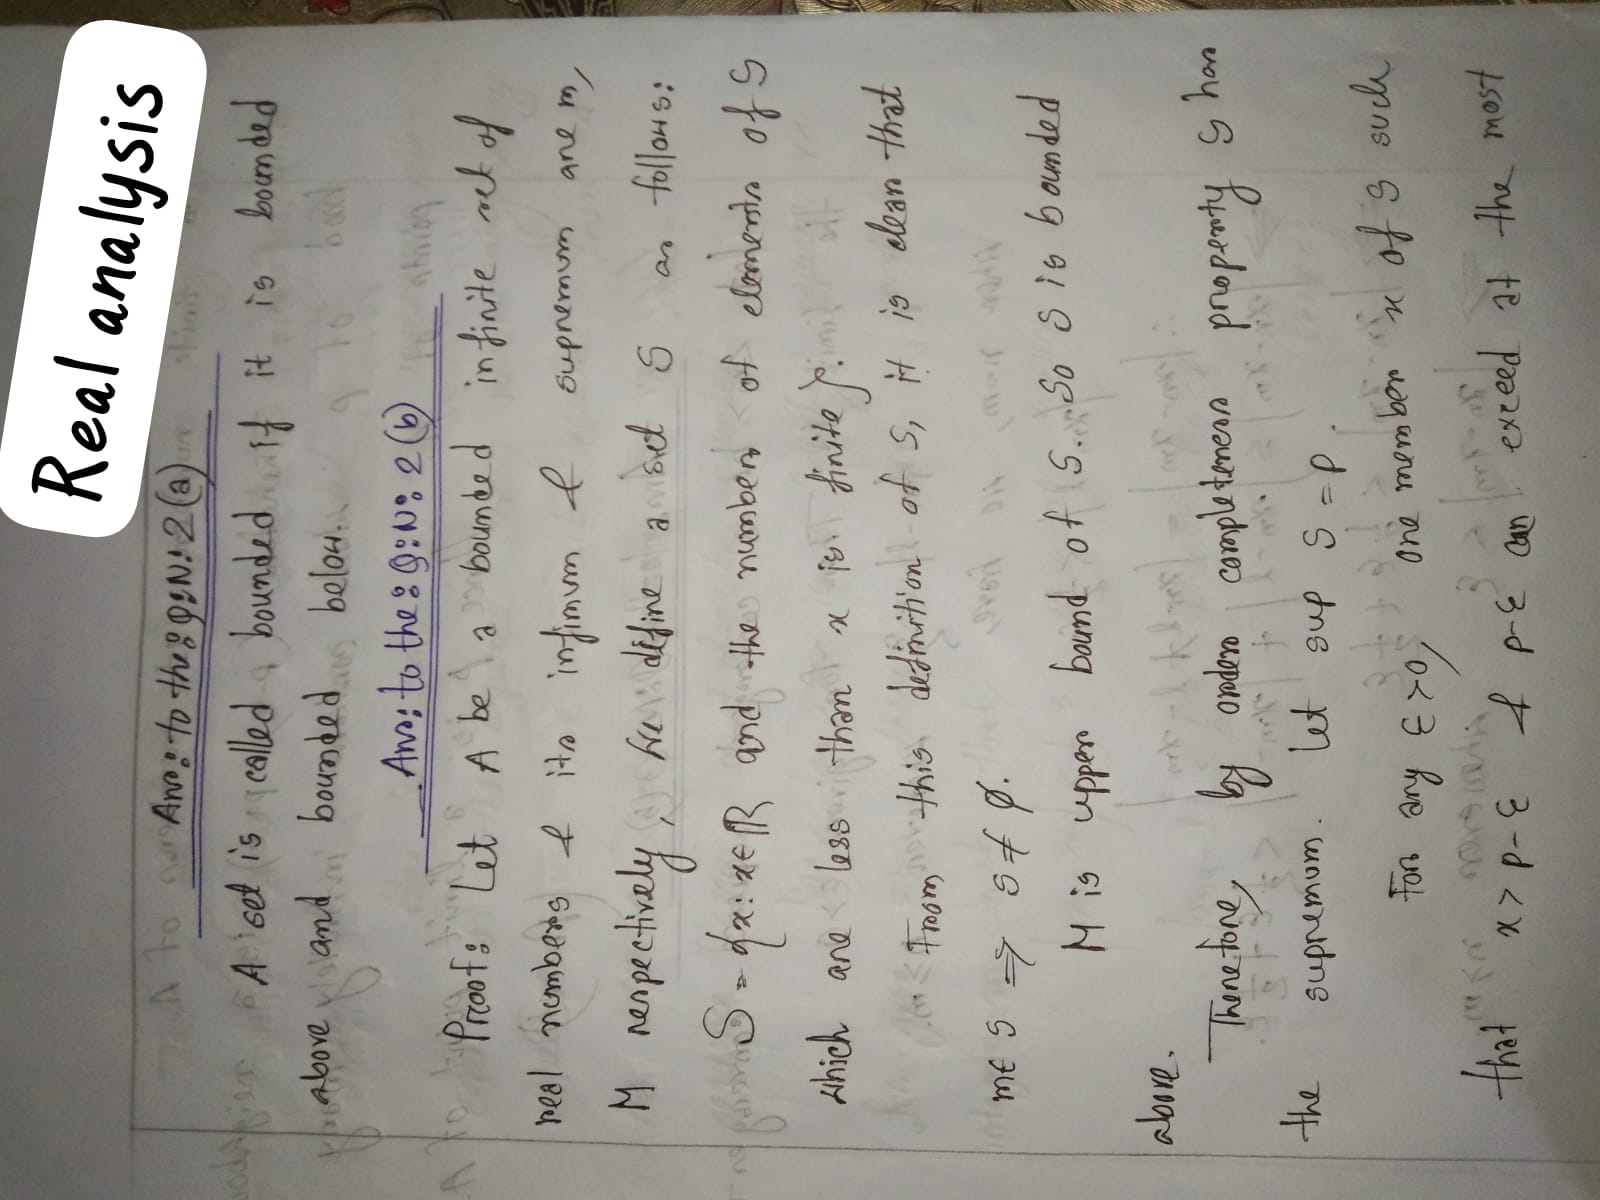 Real analysis
Ans: to the: Q: N: 2(a)
A set is called bounded if it is bounded
above and bounded below.
Ans: to the: Q: N: 2(b)
Proof: Let A be a bounded infinite set of
real numbers & its infimum & supremum are m,
M respectively, we define a set S as follows:
S = {x: x∈ℝ and the number of elements of S
which are less than x is finite}.
From, this definition of S, it is clear that
m∈S ⇒ S ≠ ∅.
M is upper bound of S. So S is bounded
above.
Therefore, by order completeness property S has
the supremum. Let sup S = P.
For any ε>0, one member x of S such
that x > P-ε & P-ε can exceed at the most